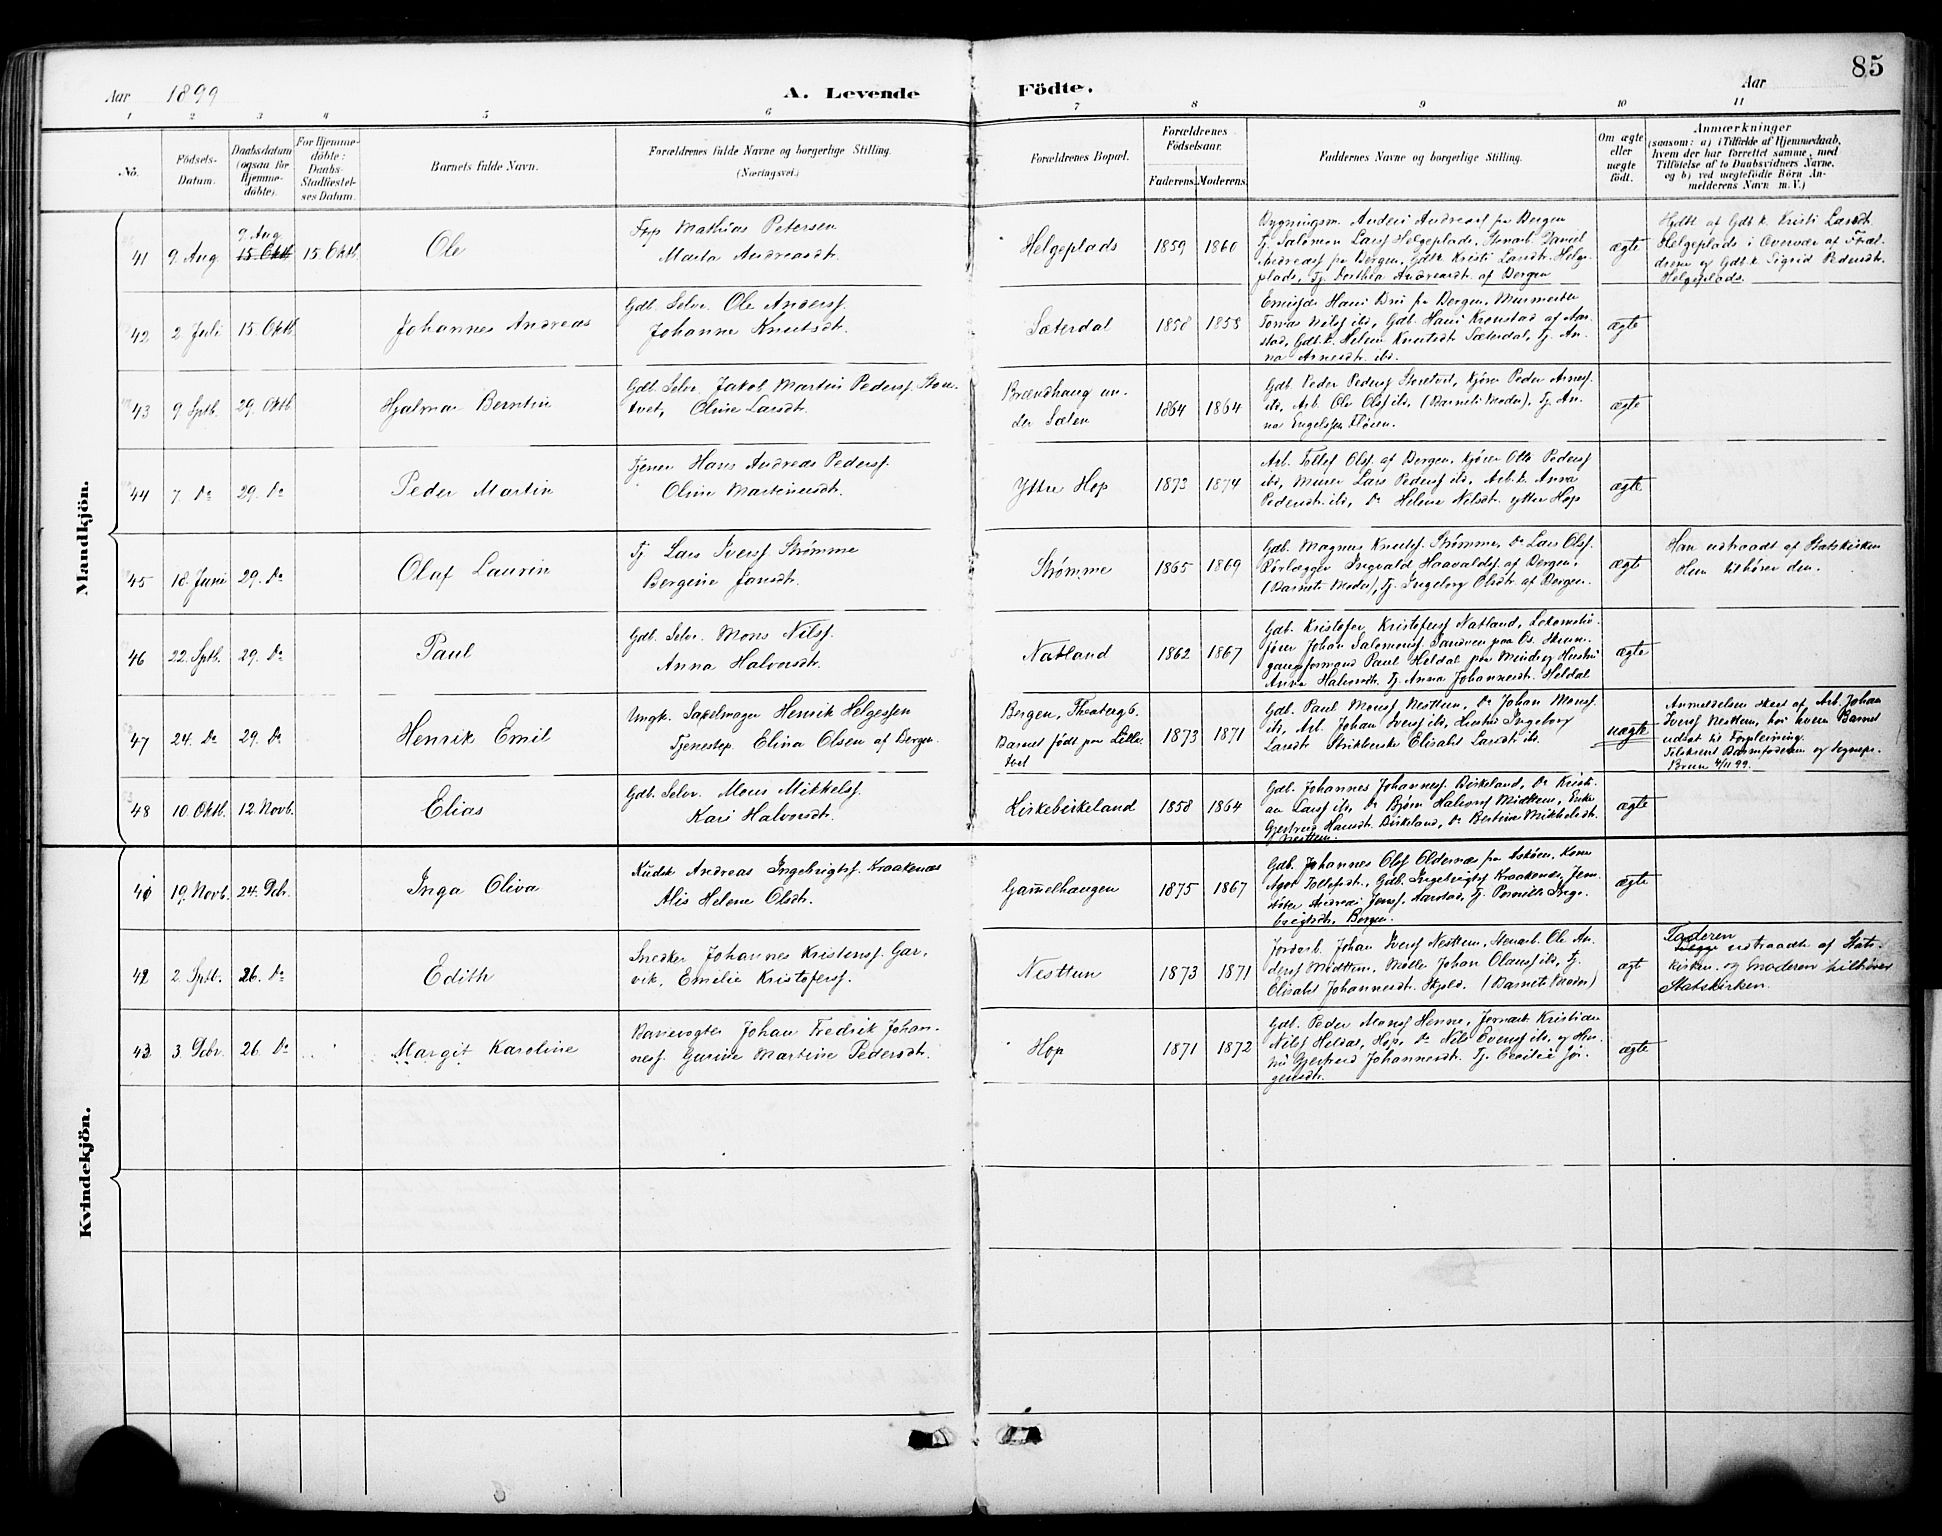 85
Aar 1899 A. Levende Födte. Aar
1 2 3 4 5 6 7 8 9 10 11
No.
Födsels-
Datum.
Daabsdatum
(ogsaa for
Hjemme-
döbte).
For Hjemme-
döbte:
Daabs-
Stadfæstel-
ses Datum.
Barnets fulde Navn.
Forældrenes fulde Navne og borgerlige Stilling.
(Næringsvei.)
Forældrenes Bopæl.
Forældrenes
Födselsaar.
Faderens. Moderens.
Faddernes Navne og borgerlige Stilling.
Om ægte
eller
uægte
födt.
Anmærkninger
(saasom: a) i Tilfælde af Hjemmedaab,
hvem der har forrettet samme, med
Tilföielse af to Daabsvidners Navne,
og b) ved uægtefödte Börn An-
melderens Navn m. V.)
Mandkjön.
41 9. Aug. 9. Aug 15. Oktb 15. Oktb Ole
Mathias Petersen
Marta Andreasdt.
Helgeplads 1859 1860
Bygningsm. Anders Andreass fra Bergen
Tj. Salomon Larsf Helgeplads, Stenarb. Daniel
Andreasf fra Bergen, Gdtk. Kristi Larsdt. Helge-
plads, Tj. Dorthea Andreasdt. af Bergen
ægte
Hjdt. af Gdtk. Kristi Larsdt
Helgeplads i Overvær af Foræl-
drene og Gdtk. Sigrid Pedersdt.
Helgeplads.
42 2 Juli 15. Oktb Johannes Andreas
Gdb. Selv. Ole Andersf.
Johanne Knutsdt.
Sæterdal 1858 1858
Hans Bru fra Bergen, Murmester
Tomas Nilsf ibd, Gdb. Hans Kronstad af Aar-
stad, Gdtk. Helene Knutsdt Sæterdal, Tj. An-
na Arnesdt. ibd.
ægte
43 9 Sptb. 29. Oktb Hjalmar Berntin
Gdb. Selv. Jakob Martin Pedersf. Store-
tvet, Oline Larsdt.
Brændhaug un-
der Sælen
1864 1864
Gdb. Peder Pedersf Storetvet, Kjører Peder Arnesf.
ib, Arb. Ole Olsf ib, (Barnets Moder), Tj. An-
na Engelsen Fløien.
ægte
44 7. Do 29. Do Peder Martin
Tjener Hans Andreas Pedersf.
Oline Martinusdt.
Yttre Hop 1873 1874
Arb. Tollef Olsf. af Bergen, Kjører Otto Pedersf
ib, Murer Lars Pedersf ib, Arb.k. Anna
Pedersdt. ib, Do Helene Nilsdt. ytter Hop
ægte
45 18. Juni 29. Do Olaf Laurin
Tj. Lars Iversf Strømme
Bergine Jansdt.
Strømme 1865 1869
Gdb. Magnus Knutsf. Strømme, Do Lars Olsf.
Rørlægger Ingvald Haavaldsf. af Bergen,
(Barnets Moder), Tj. Ingeborg Olsdt. af Bergen.
ægte
Han udtraadt af Statskirken
Hun tilhører den.
46 22. Sptb. 29. Do Paul
Gdb. Selv. Mons Nilsf.
Anna Halvorsdt.
Natland 1862 1867
Gdb. Kristofer Kristofersf Natland, Lokomotiv-
fører Johan Salomonsf. Sandven paa Os.
Paul Heldal paa Minde og Hustru
Anna Halvorsdt. Tj. Anna Johannesdt. Heldal
ægte
47 24. Do 29. Do Henrik Emil
Ungk. Sadelmager Henrik Helgessen
Tjenestep. Elina Olsen af Bergen.
Bergen, Theaterg. 6.
Barnet født paa Lille-
tvet
1873 1871
Gdb. Paul Monsf Nesttun, Do Johan Monsf
ib, Arb. Johan Iversf ib, Hustru Ingeborg
Larsdt. Strikkerske Elisabet Larsdt ib.
uægte
Anmeldelsen skeet af Arb. Johan
Iversf Nesttun, hos hvem Barnet
udsat til Forpleining.
Tilskrevet Barnefaderen og Sognepr.
Brun 4/11 99.
48 10. Oktb. 12 Novb. Elias
Gdb. Selv. Mons Mikkelsf.
Kari Halvorsdt.
Kirkebirkeland 1858 1864
Gdb. Johannes Johannesf. Birkeland, Do Kristi-
an Larsf ib, Do Bjørn Halvorsf Midttun, Enke
Gjertrud Hansdt. Birkeland, Do Bertine Mikkelsdt.
Nesttun.
ægte
Kvindekjön.
41 19. Novb. 24. Decbr. Inga Oliva
Kudsk Andreas Ingebrigtsf. Kraakenæs
Alis Helene Olsdt.
Gamelhaugen 1875 1867
Gdb. Johannes Olsf Oldernæs fra Askøen, Kone
Agot Tollefsdt., Gdb. Ingebrigtsf Kraakenæs,
Andreas Jensf. Aarstad, Tj. Pernille Inge-
brigtsdt. Bergen.
ægte
42 2. Sptb. 26. Do Edith
Snedker Johannes Kristensf. Gar-
vik, Emelie Kristofersf.
Nesttun 1873 1871
Jordarb. Johan Iversf Nesttun, Stenarb. Ole An-
dersf Midttun, Møller Johan Olausf ib, Tj.
Elisabet Johannesdt. Skjold. (Barnets Moder)
ægt
Faderen
udtraadte af Stats-
kirken og Moderen tilhører
Statskirken.
43 3. Decbr. 26. Do Margit Karoline
Banevogter Johan Fredrik Johan-
nesf. Gurine Martine Pedersdt.
Hop 1871 1872
Gdb. Peder Monsf Henne, Jernarb Kristian
Nilsf Heldal, Hop, Do Nils Evensf ib, og Hu-
stru Gjertrud Johannesdt. Tj. Cecilie Jør-
gensdt.
ægte